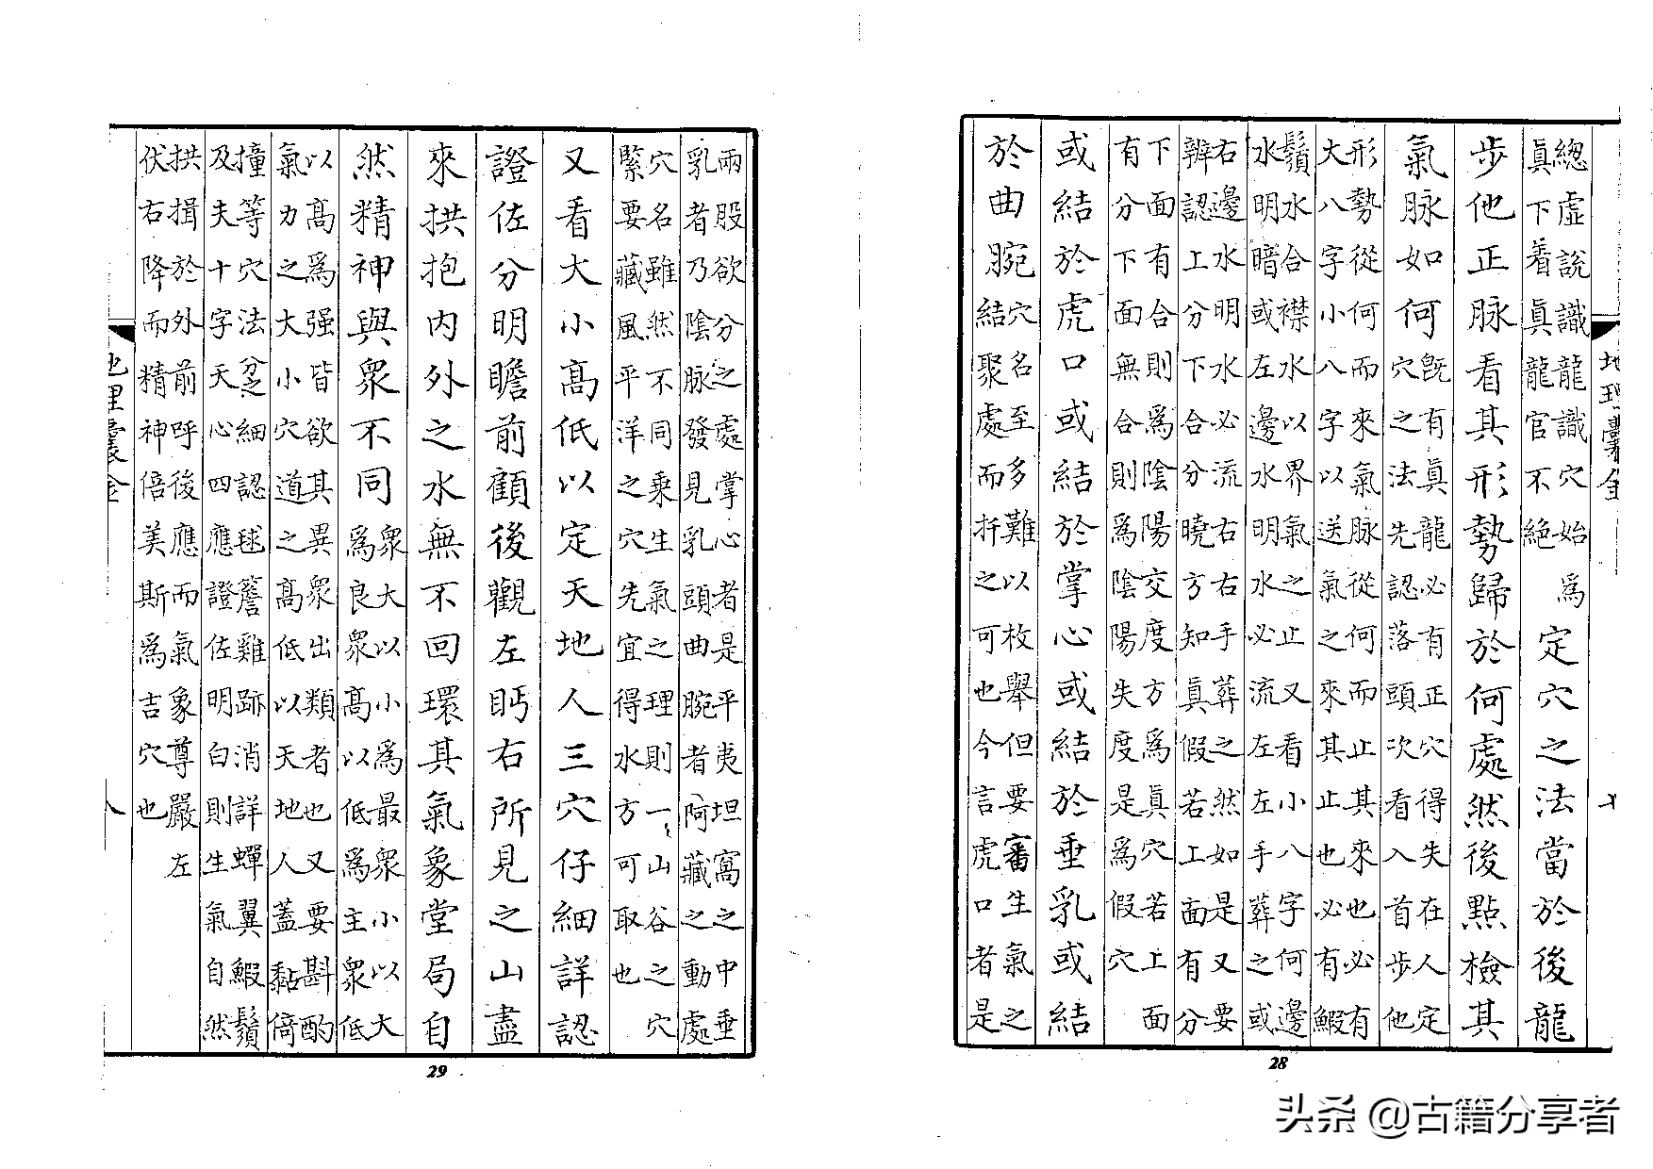 總虛說識龍識穴始為
眞下着眞龍官不絕
定穴之法當於後龍
步他正脉看其形勢歸於何處然後點檢其
氣脉如何
既有真龍必有正穴得失在人定
穴之法先認落頭次看入首步他
形勢從何而來氣脉從何而止其來也必有
大八字小八字以送氣之來其止也必有鰕
鬚水合襟水以界氣之止又看小八字何邊
水明暗或左邊水明水必流左左手葬之或
右邊水明水必流右右手葬之然如是又要
辨認上分下合分曉方知眞假若上面有分
下面有合則爲陰陽交度方爲真穴若上面
有分下面無合則爲陰陽失度是爲假穴
或結於虎口或結於掌心或結於垂乳或結
於曲腕
穴名至多難以枚舉但要審生氣之
結聚處而扦之可也今言虎口者是
地理囊金
七
28
兩股欲分之處掌心者是平夷坦窩之中垂
乳者乃陰脉發見乳頭曲腕者阿藏之動處
穴名雖然不同乘生氣之理則一山谷之穴
緊要藏風平洋之穴先宜得水方可取也
又看大小高低以定天地人三穴仔細詳認
證佐分明瞻前顧後觀左眄右所見之山盡
來拱抱內外之水無不回環其氣象堂局自
然精神與眾不同
眾大以小爲最眾小以大
爲良眾高以低爲主眾低
以高爲强皆欲其異眾出類者也又要斟酌
氣力之大小穴道之高低以天地人蓋黏倚
撞等穴法分之細認毬簷雞跡消詳蟬翼鰕鬚
及夫十字天心四應證佐明白則生氣自然
拱揖於外前呼後應而氣象尊嚴左
伏右降而精神倍美斯爲吉穴也
地理囊金
八
29
头条 @古籍分享者